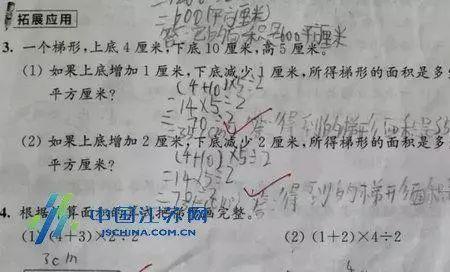 拓展应用
=600(平方厘米)
3. 一个梯形，上底 4 厘米，下底 10 厘米，高 5 厘米。
(1) 如果上底增加 1 厘米，下底减少 1 厘米，所得梯形的面积是多
平方厘米？
(4+10)×5÷2
=14×5÷2
=70÷2
答：得到的梯形面积是35
(2) 如果上底增加 2 厘米，下底减少 2 厘米，所得梯形的面积是多
平方厘米？
(4+10)×5÷2
=14×5÷2
=70÷2
答：得到的梯形面积
4. 根据 算面 完整。
中国江苏网
JSCHINA.COM.CN
(1) (4+3)×2÷2
(2) (1+2)×4÷2
3cm